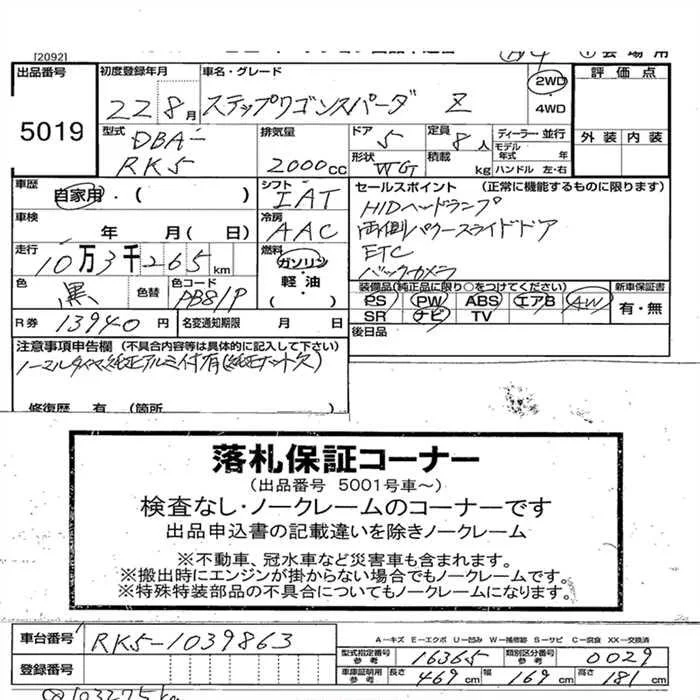 [2092]
出品番号 5019
初度登録年月 22 8月
車名・グレード ステップワゴンスパーダ Z
2WD
4WD
型式 DBA-
RK5
排気量 2000cc
ドア 5
定員 8人
形状 WG
積載 kg
ディーラー・並行
モデル年式 年
ハンドル 左・右
評価点
外装 内装
車歴 自家用・( )
車検 年 月( 日)
走行 10万3千265km
色 黒 色替
色コード
R券 13940円
名変通知期限 月 日
シフト IAT
冷房 AAC
燃料 ガソリン
軽油
( )
セールスポイント (正常に機能するものに限ります)
HIDヘッドランプ
両側パワースライドドア
ETC
バックカメラ
装備品(純正品に限り○をつけてください)
PS PW ABS エアB AW
SR ナビ TV
新車保証書
有・無
後日品
注意事項申告欄 (不具合内容等は具体的に記入して下さい)
修復歴 有 (箇所
落札保証コーナー
(出品番号 5001号車~)
検査なし・ノークレームのコーナーです
出品申込書の記載違いを除きノークレーム
※不動車、冠水車など災害車も含まれます。
※搬出時にエンジンが掛からない場合でもノークレームです。
※特殊特装部品の不具合についてもノークレームになります。
車台番号 RK5-1039863
登録番号
A-キズ E-エクボ U-凹み W-補修跡 S-サビ C-腐食 XX-交換済
型式指定番号 参考 16365
類別区分番号 参考 0029
車庫証明用 参考 長さ 469cm 幅 169cm 高さ 181cm